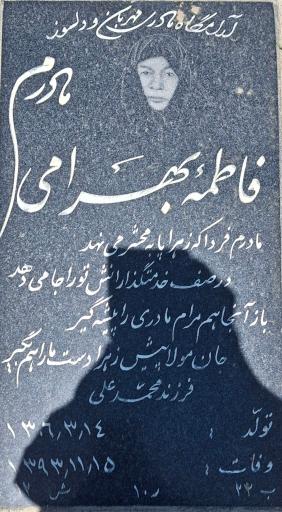 آرامگاه مادری مهربان و دلسوز
مادرم
فاطمه بهرامی
مادرم فردا که زهرا پا به محشر می نهد
در صف خدمتگذارانش تو را جا می دهد
باز آنجا هم مرام مادری را پیشه گیر
جان مولا پیش زهرا دست ما را هم بگیر
فرزند محمد علی
تولد : ۱۳۰۶٫۳٫۱۴
وفات : ۱۳۹۳٫۱۱٫۱۵
ب ۲۳ ر۱۰ ش ۲